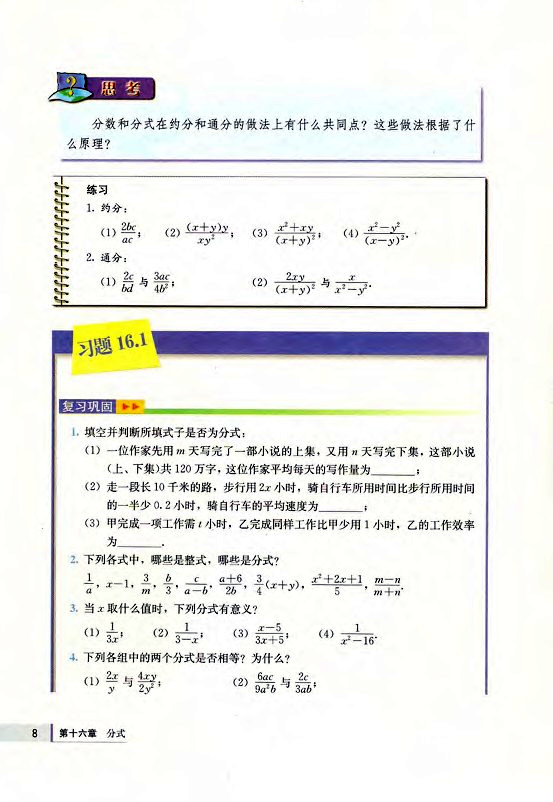 思考
分数和分式在约分和通分的做法上有什么共同点？这些做法根据了什
么原理？
练习
1. 约分：
(1) 2bc/ac； (2) (x+y)y/xy²； (3) (x²+xy)/(x+y)²； (4) (x²−y²)/(x−y)².
2. 通分：
(1) 2c/bd 与 3ac/4b²； (2) 2xy/(x+y)² 与 x/(x²−y²).
习题 16.1
复习巩固
1. 填空并判断所填式子是否为分式：
(1) 一位作家先用 m 天写完了一部小说的上集，又用 n 天写完下集，这部小说
(上、下集)共 120 万字，这位作家平均每天的写作量为________；
(2) 走一段长 10 千米的路，步行用 2x 小时，骑自行车所用时间比步行所用时间
的一半少 0.2 小时，骑自行车的平均速度为________；
(3) 甲完成一项工作需 t 小时，乙完成同样工作比甲少用 1 小时，乙的工作效率
为________.
2. 下列各式中，哪些是整式，哪些是分式？
1/a，x−1，3/m，b/3，c/(a−b)，(a+6)/2b，3/4(x+y)，(x²+2x+1)/5，(m−n)/(m+n).
3. 当 x 取什么值时，下列分式有意义？
(1) 1/3x； (2) 1/(3−x)； (3) (x−5)/(3x+5)； (4) 1/(x²−16).
4. 下列各组中的两个分式是否相等？为什么？
(1) 2x/y 与 4xy/2y²； (2) 6ac/9a²b 与 2c/3ab；
8 第十六章 分式